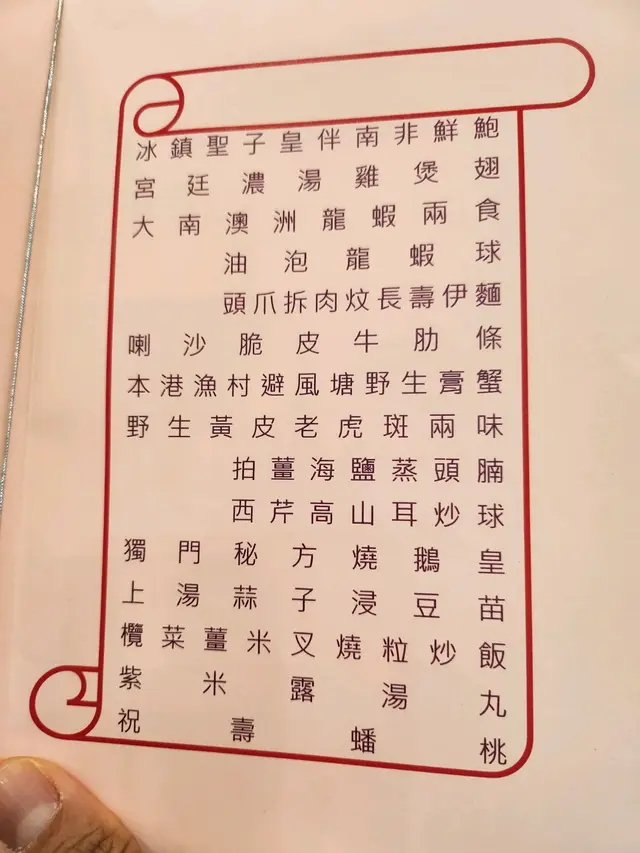 冰鎮聖子皇伴南非鮮鮑
宮廷濃湯雞煲翅
大南澳洲龍蝦兩食
油泡龍蝦球
頭爪拆肉炆長壽伊麵
喇沙脆皮牛肋條
本港漁村避風塘野生膏蟹
野生黃皮老虎斑兩味
拍薑海鹽蒸頭腩
西芹高山耳炒球
獨門秘方燒鵝皇
上湯蒜子浸豆苗
欖菜薑米叉燒粒炒飯
紫米露湯丸
祝壽蟠桃